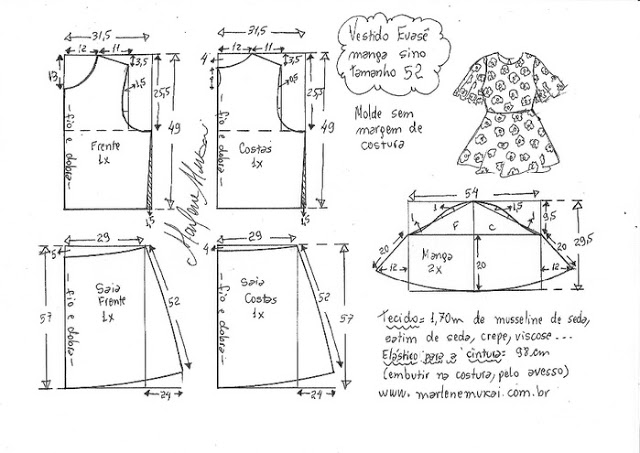 Vestido Evasê
manga sino
tamanho 52
Molde sem
margem de
costura
31,5
12
11
3,5
13
1,5
25,5
49
fio e dobra
Frente
1x
1,5
31,5
12
11
4
3,5
0,5
25,5
49
fio e dobra
Costas
1x
1,5
Marlene Mukai
29
5
57
52
fio e dobra
Saia
Frente
1x
24
29
4
52
57
fio e dobra
Saia
Costas
1x
24
54
1
1,5
1
1
9,5
F
C
20
20
29,5
12
12
Manga
2x
20
Tecido= 1,70m de musseline de seda,
cetim de seda, crepe, viscose...
Elástico para a cintura= 98cm
(embutir na costura, pelo avesso)
www.marlenemukai.com.br